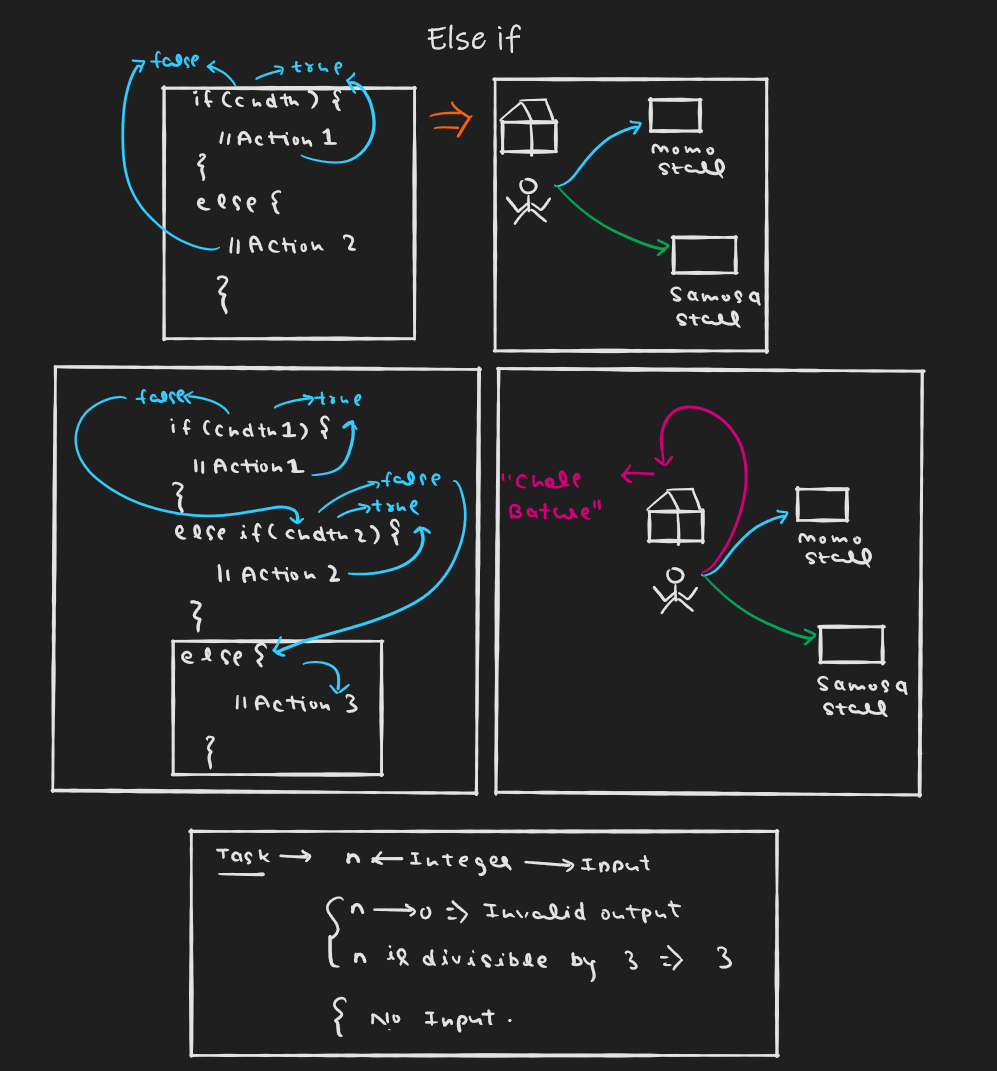 Else if
false
true
if (cndtn) {
//Action 1
}
else {
//Action 2
}
momo
stall
Samosa
stall
false
true
if (cndtn1) {
//Action1
}
false
true
else if (cndtn2) {
//Action 2
}
else {
//Action 3
}
"Chole
Bature"
momo
stall
Samosa
stall
Task → n ← Integer → Input
{ n → 0 => Invalid output
n is divisible by 3 => 3
{ No Input.